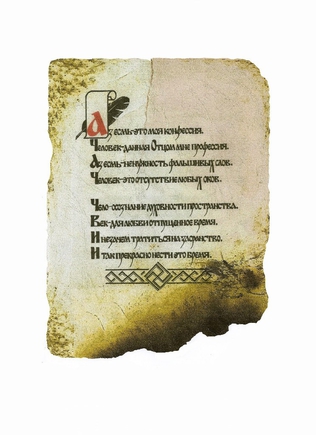 Аз есмь-это моя конфессия.
Человек-данная Отцом мне профессия.
Аз есмь-ненужность фальшивых слов.
Человек-это отсутствие любых оков.
Чело-осознание духовности пространства.
Век-для любви отпущенное время.
И незачем тратиться на
И так прекрасно нести это бремя.